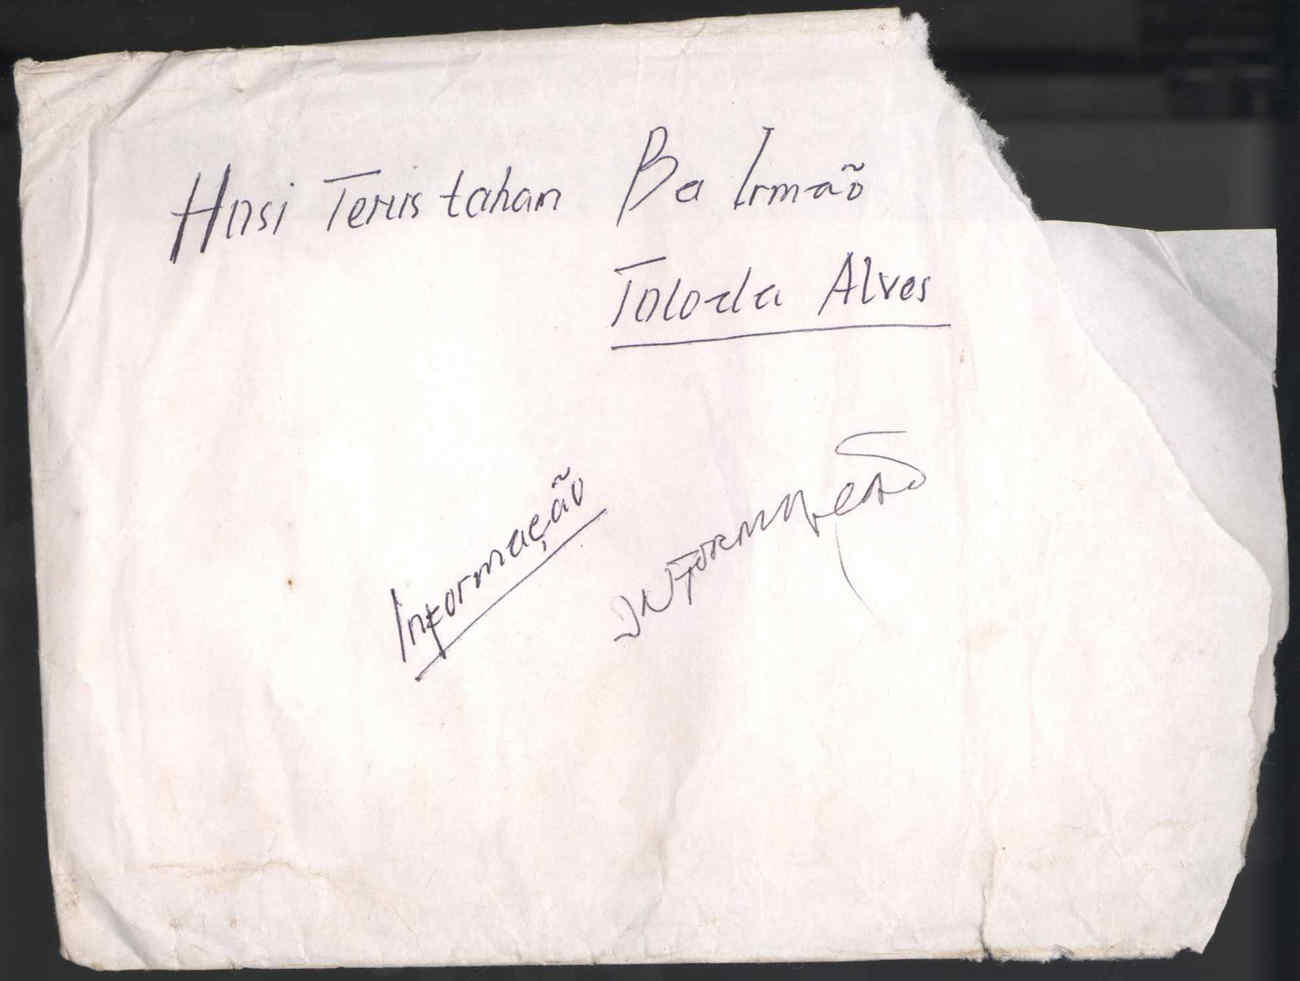 Hosi Terus tahan Ba Irmão
Toloda Alves
Informação
INFORMAÇÃO